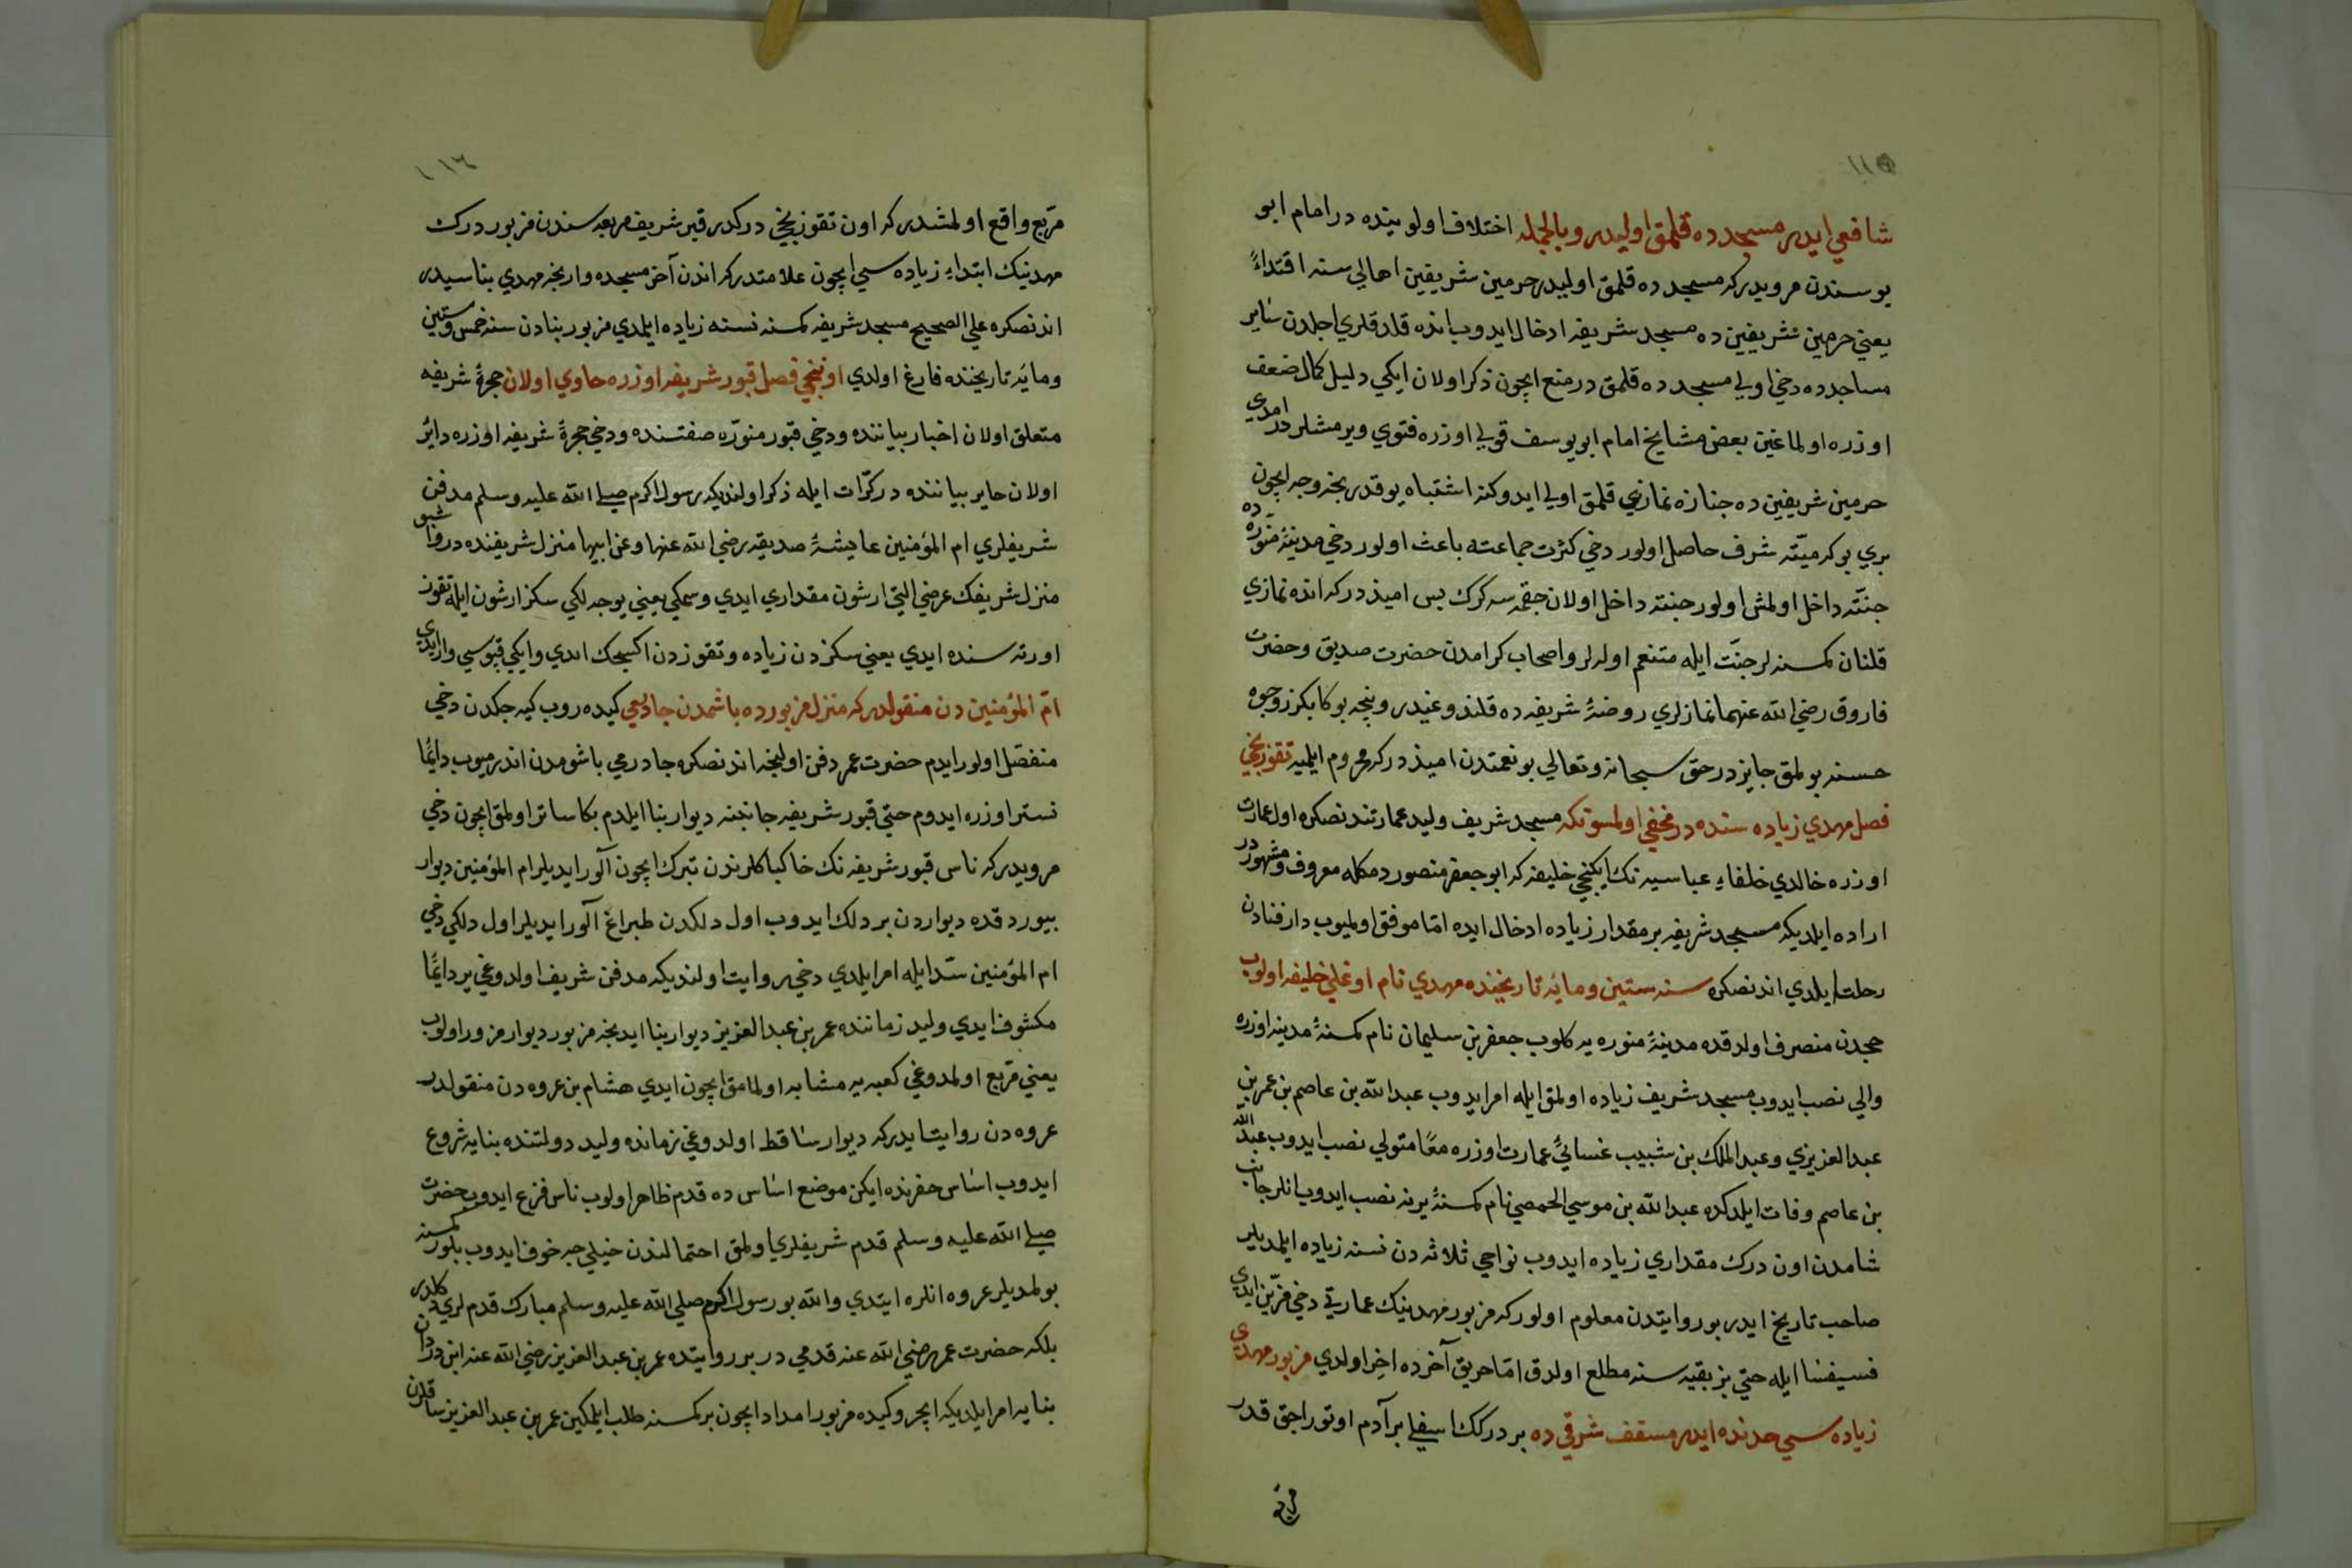 ١١٥
شافعي ايدر مسجدده قلمق اوليدر وبالجمله اختلاف اولويتنده در امام ابو
يوسفدن مرويدركه مسجدده قلمق اوليدر حرمين شريفين اهالي سنه اقتداءً
يعني حرمين شريفين ده مسجد شريفه ادخال ايدوب انده قلدقلري اجلدن ساير
مساجدده دخي اولي مسجدده قلمق در منع ايچون ذكر اولان ايكي دليل كمال ضعف
اوزره اولماغين بعض مشايخ امام ابو يوسف قولي اوزره فتوي ويرمشلردر امدي
حرمين شريفين ده جنازه نمازي قلمق اولي ايدوكنه اشتباه يوقدر نجه وجه ايچون
بري بوكه ميّته شرف حاصل اولور دخي كثرت جماعته باعث اولور دخي مدينۀ منوّره ده
جنّته داخل اولمش اولور جنته داخل اولان چقمسه كرك پس اميذ دركه انده نمازي
قلنان كمسنه لر جنّت ايله متنعم اوله لر واصحاب كرامدن حضرت صديق وحضرت
فاروق رضي الله عنهما نمازلري روضۀ شريفه ده قلندوغيدر ونجه بوكا بكزر وجوه
حسنه بولمق جايزدر حق سبحانه وتعالي بو نعمتدن اميذ دركه محروم ايلميه تقوزنجي
فصل مهدي زياده سنده در مخفي اولمسونكه مسجد شريف وليد عمارتندنصكره اول عمارت
اوزره خالدي خلفاء عباسيه نك ايكنجي خليفه كه ابو جعفر منصور دمكله معروف ومشهوردر
اراده ايلديكه مسجد شريفه بر مقدار زياده ادخال ايده امّا موفق اولميوب دار فنادن
رحلت ايلدي اندنصكره سنه ستين ومائه تاريخنده مهدي نام اوغلي خليفه اولوب
حجدن منصرف اولدقده مدينۀ منوره يه كلوب جعفر بن سليمان نام كمسنۀ مدينه اوزره
والي نصب ايدوب مسجد شريف زياده اولمق ايله امر ايدوب عبد الله بن عاصم بن عمر بن
عبد العزيزي وعبد الملك بن شبيب غسانيً عمارت اوزره معًا متولي نصب ايدوب عبد الله
بن عاصم وفات ايلدكده عبد الله بن موسي الحمصي نام كمسنۀ يرينه نصب ايدوب انلر جانب
شامدن اون درك مقداري زياده ايدوب نواحي ثلاثه دن نسنه زياده ايلمديلر
صاحب تاريخ ايدر بو روايتدن معلوم اولوركه مزبور مهدينك عمارتي دخي مزيّن ايدي
فسيفسا ايله حتي بز بقيه سنه مطلع اولدق امّا حريق آخرده اخر اولدي مزبور مهدي
زياده سي حدنده ايدر مسقف شرقي ده بر دركك اسفلي بر آدم اوتوراجق قدر
مربع
١١٦
مربّع واقع اولمشدركه اون تقوزنجي دركدر قبر شريف مربعه سندن مزبور درك
مهدينك ابتداء زياده سي ايچون علامتدركه اندن آخر مسجده وارنجه مهدي بناسيدر
اندنصكره علي الصحيح مسجد شريفه كمسنه نسنه زياده ايلمدي مزبور بنادن سنه خمس وستين
ومائه تاريخنده فارغ اولدي اوننجي فصل قبور شريفه اوزره حاوي اولان حجرۀ شريفه
متعلق اولان اخبار بياننده ودخي قبور منوّره صفتنده ودخي حجرۀ شريفه اوزره دائر
اولان حاير بياننده در كرّات ايله ذكر اولنديكه رسول اكرم صلي الله عليه وسلم مدفن
شريفلري ام المؤمنين عايشۀ صديقه رضي الله عنها وعن ابيها منزل شريفنده در واشبو
منزل شريفك عرضي التي ارشون مقداري ايدي وسمكي يعني يوجه لكي سكز ارشون ايله تقوز
اورته سنده ايدي يعني سكزدن زياده وتقوزدن اكسجك ايدي وايكي قپوسي وار ايدي
امّ المؤمنين دن منقولدركه منزل مزبورده باشمدن جاديعي كيده روب كيه جكدن دخي
منفصل اولور ايدم حضرت عمر دفن اولنجه اندنصكره جادرمي باشومدن اندرميوب دائمًا
تستر اوزره ايدوم حتي قبور شريفه جانبنه ديوار بنا ايلدم بكا ساتر اولمق ايچون دخي
مرويدركه ناس قبور شريفه نك خاك پاكلرندن تبرك ايچون آلور ايديلر ام المؤمنين ديوار
بيوردقده ديواردن بر دلك ايدوب اول دلكدن طبراغ آلور ايديلر اول دلكي دخي
ام المؤمنين سدّ ايله امر ايلدي دخي روايت اولنديكه مدفن شريف اولدوغي ير دائمًا
مكشوف ايدي وليد زماننده عمر بن عبد العزيز ديوار بنا ايدنجه مزبور ديوار مزور اولوب
يعني مربع اولمدوغي كعبه يه مشابه اولمامق ايچون ايدي هشام بن عروه دن منقولدر
عروه دن روايت ايدركه ديوار ساقط اولدوغي زمانده وليد دولتنده بنايه شروع
ايدوب اساس حفرنده ايكن موضع اساس ده قدم ظاهر اولوب ناس فزع ايدوب حضرت
صلي الله عليه وسلم قدم شريفلري اولمق احتمالندن خيلي جه خوف ايدوب بلور كمسنه
بولمديلر عروه انلره ايتدي والله بو رسول اكرم صلي الله عليه وسلم مبارك قدم لري دكلدر
بلكه حضرت عمر رضي الله عنه قدمي در بر روايتده عمر بن عبد العزيز رضي الله عنه ابن وردان
بنايه امر ايلديكه ايچروكيده مزبور امداد ايچون بر كمسنه طلب ايلمكين عمر بن عبد العزيز ساقلرن